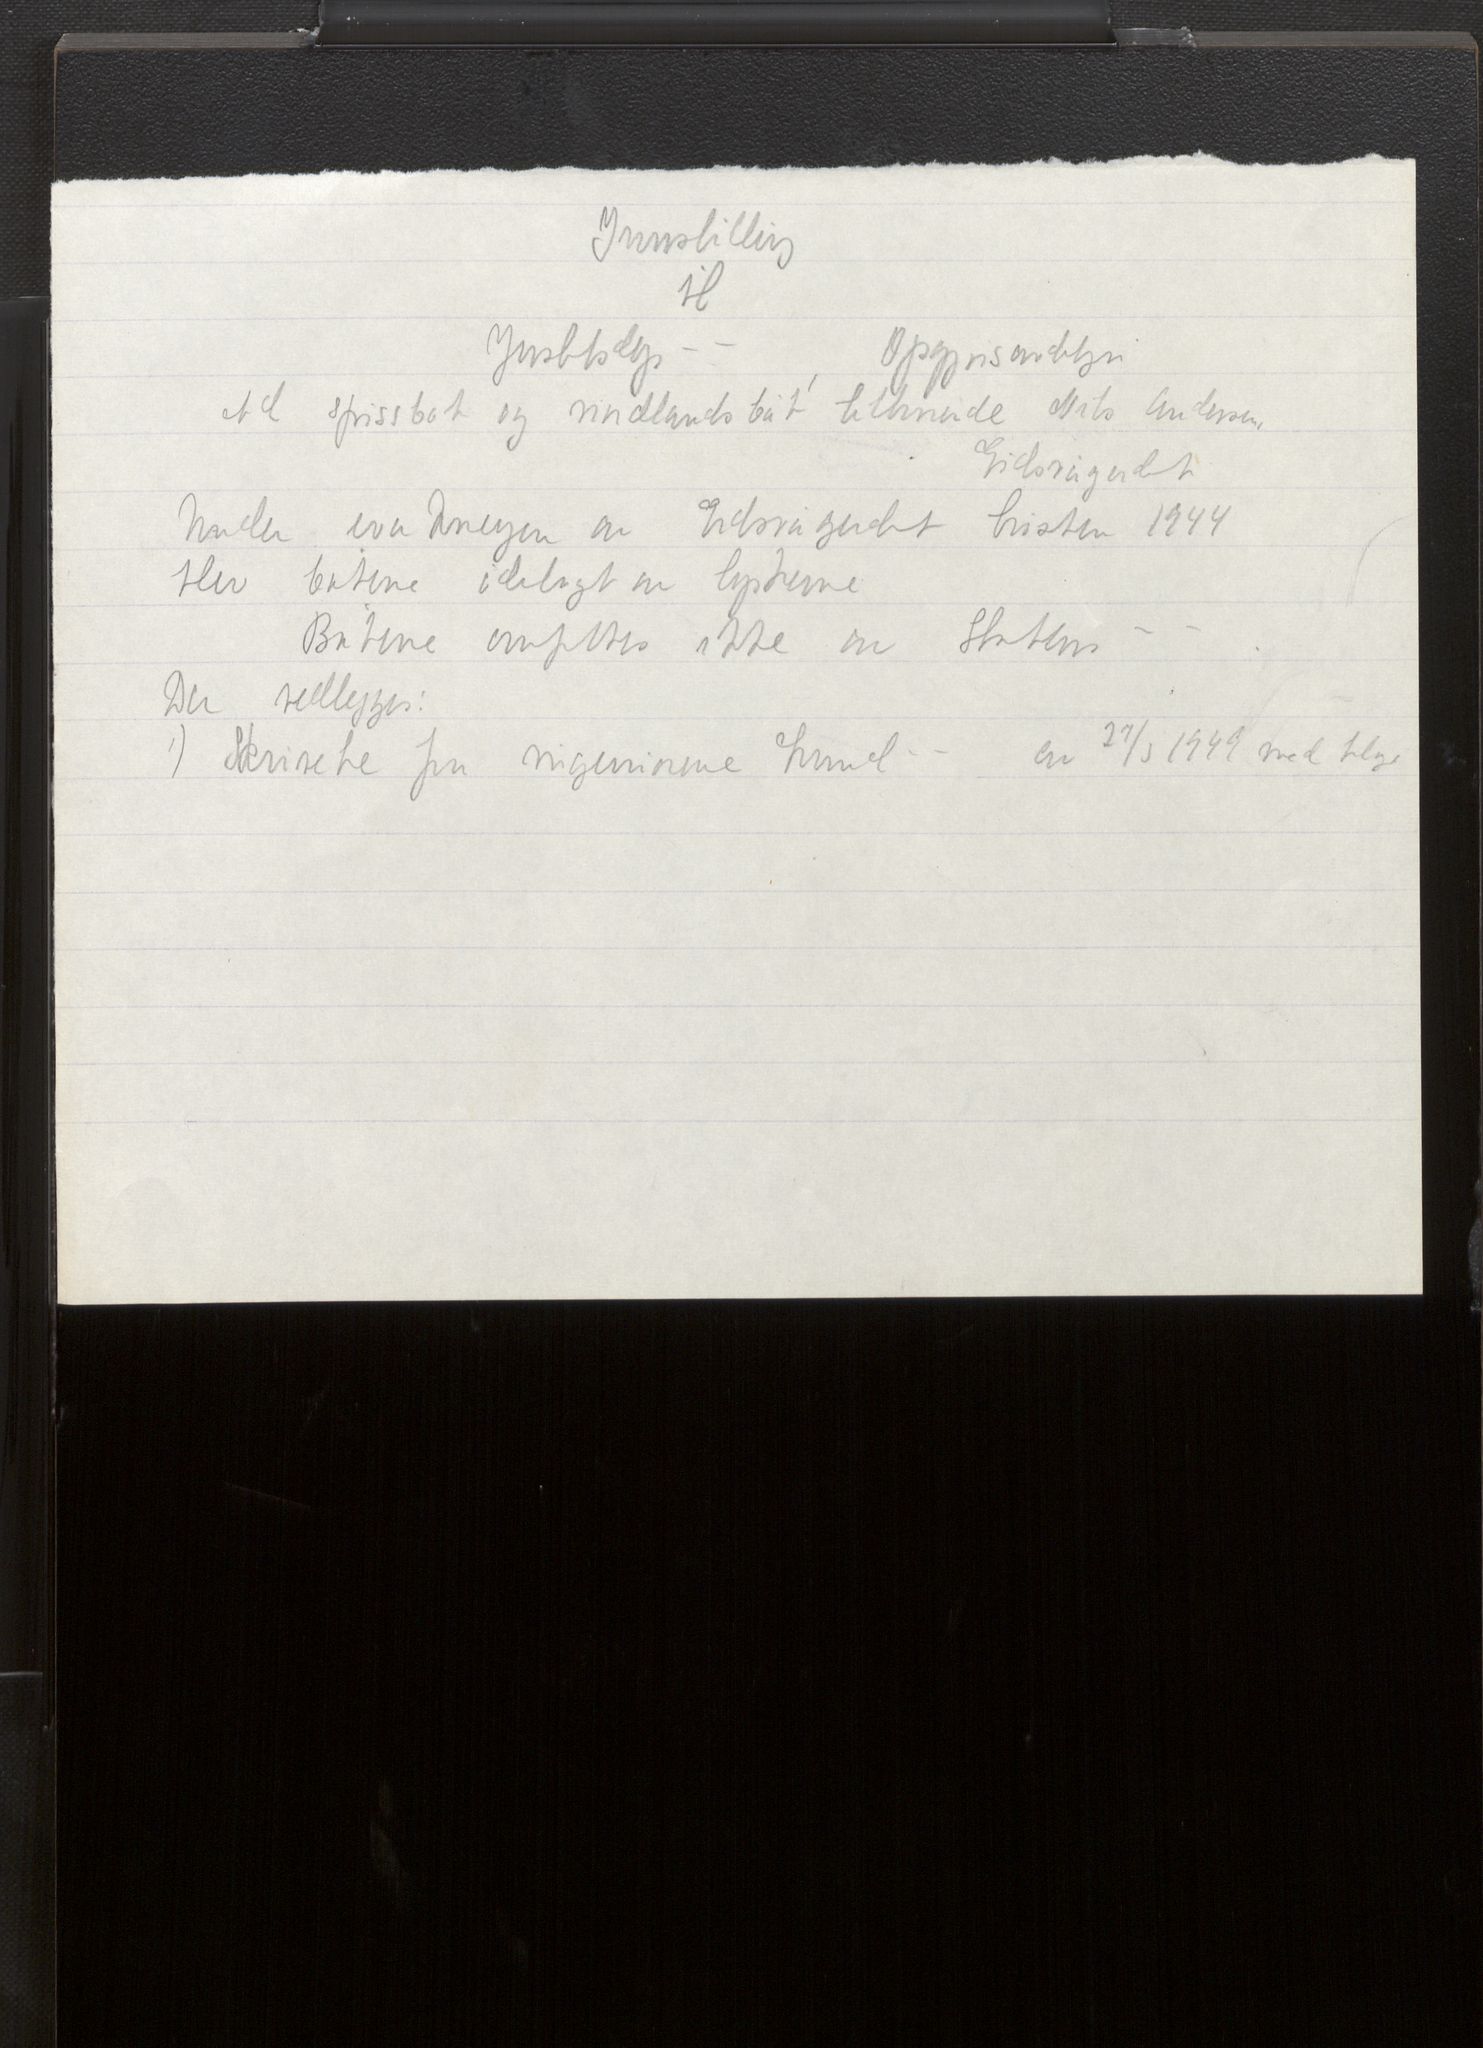 Innstilling
til
Justisdep - - Opgjørsavdelgn
Ad spissbåt og nordlandsbåt tilhørende Nils Andersen,
Eidsvågeidet
Under evakueringen av Eidsvågeidet høsten 1944
blev båtene ødelagt av tyskerne
Båtene omfattes ikke av Statens - -
Der vedlegges:
1) Skrivelse fra ingeniørene Lund - - av 27/5 1949 med bilag